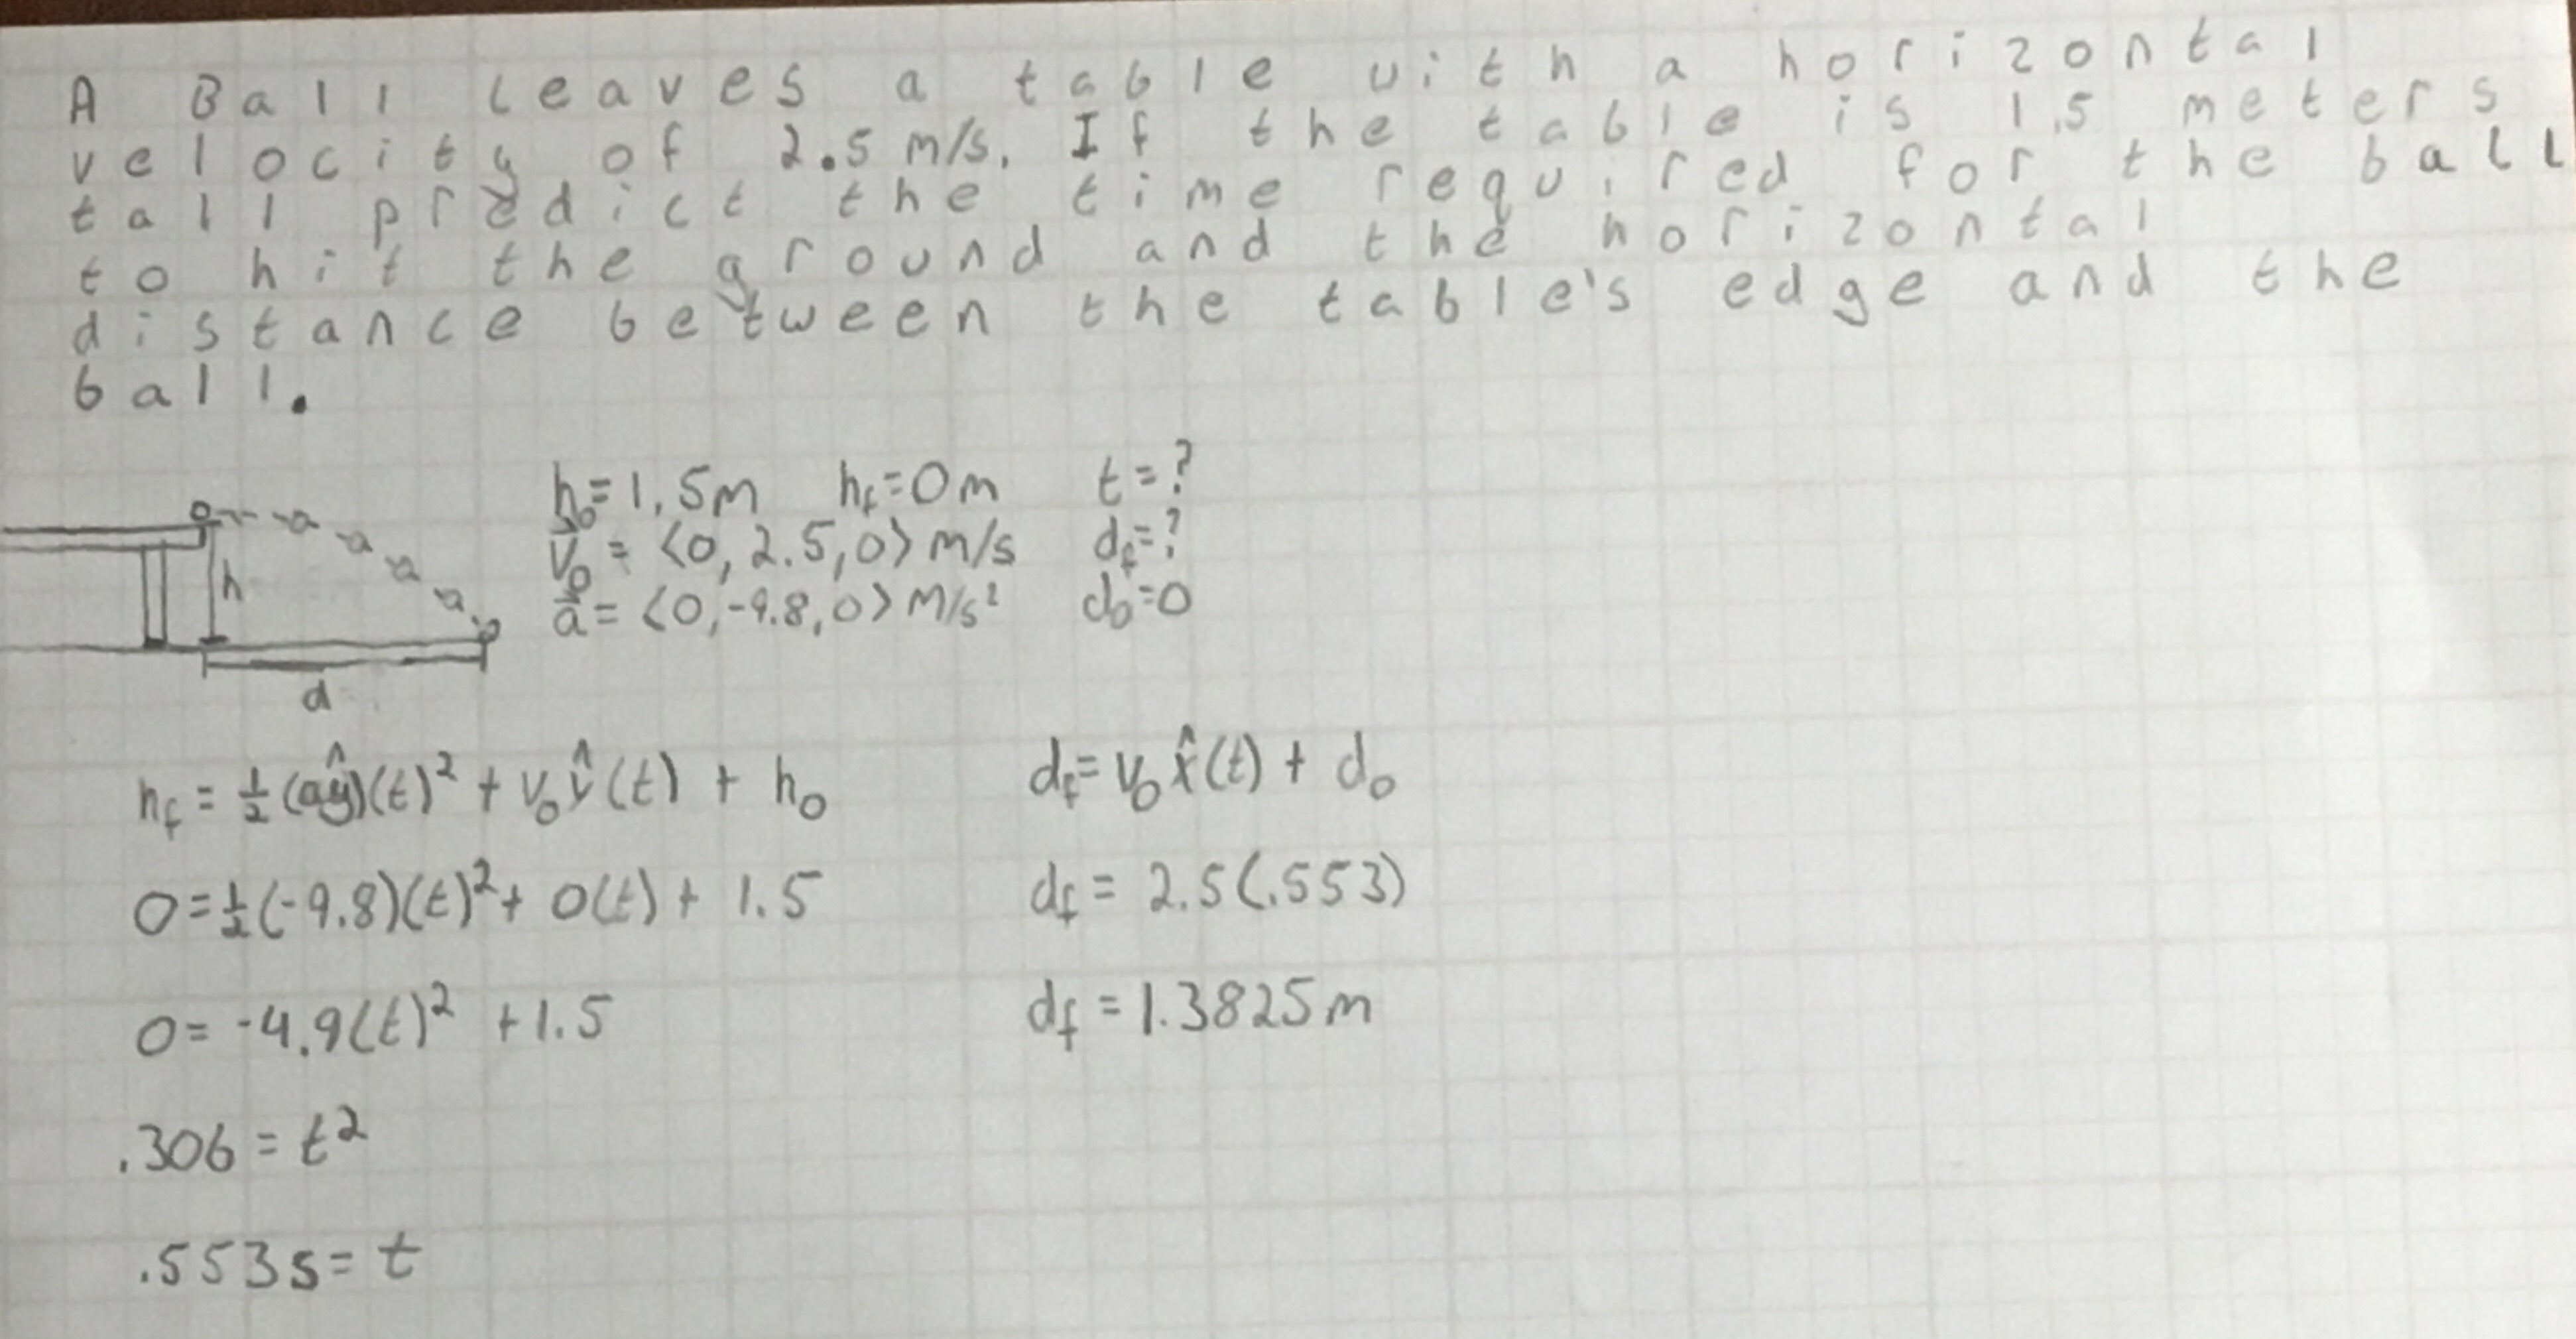 A Ball leaves a table with a horizontal
velocity of 2.5 m/s. If the table is 1.5 meters
tall predict the time required for the ball
to hit the ground and the horizontal
distance between the table's edge and the
ball.
h₀=1.5m h_f=0m t=?
v⃗₀ = <0, 2.5, 0> m/s d_f=?
a⃗ = <0, -9.8, 0> m/s² d₀=0
h
d
h_f = ½(aŷ)(t)² + v₀ŷ(t) + h₀
d_f = v₀x̂(t) + d₀
0=½(-9.8)(t)²+ 0(t) + 1.5
d_f = 2.5(.553)
0= -4.9(t)² +1.5
d_f = 1.3825m
.306 = t²
.553s = t